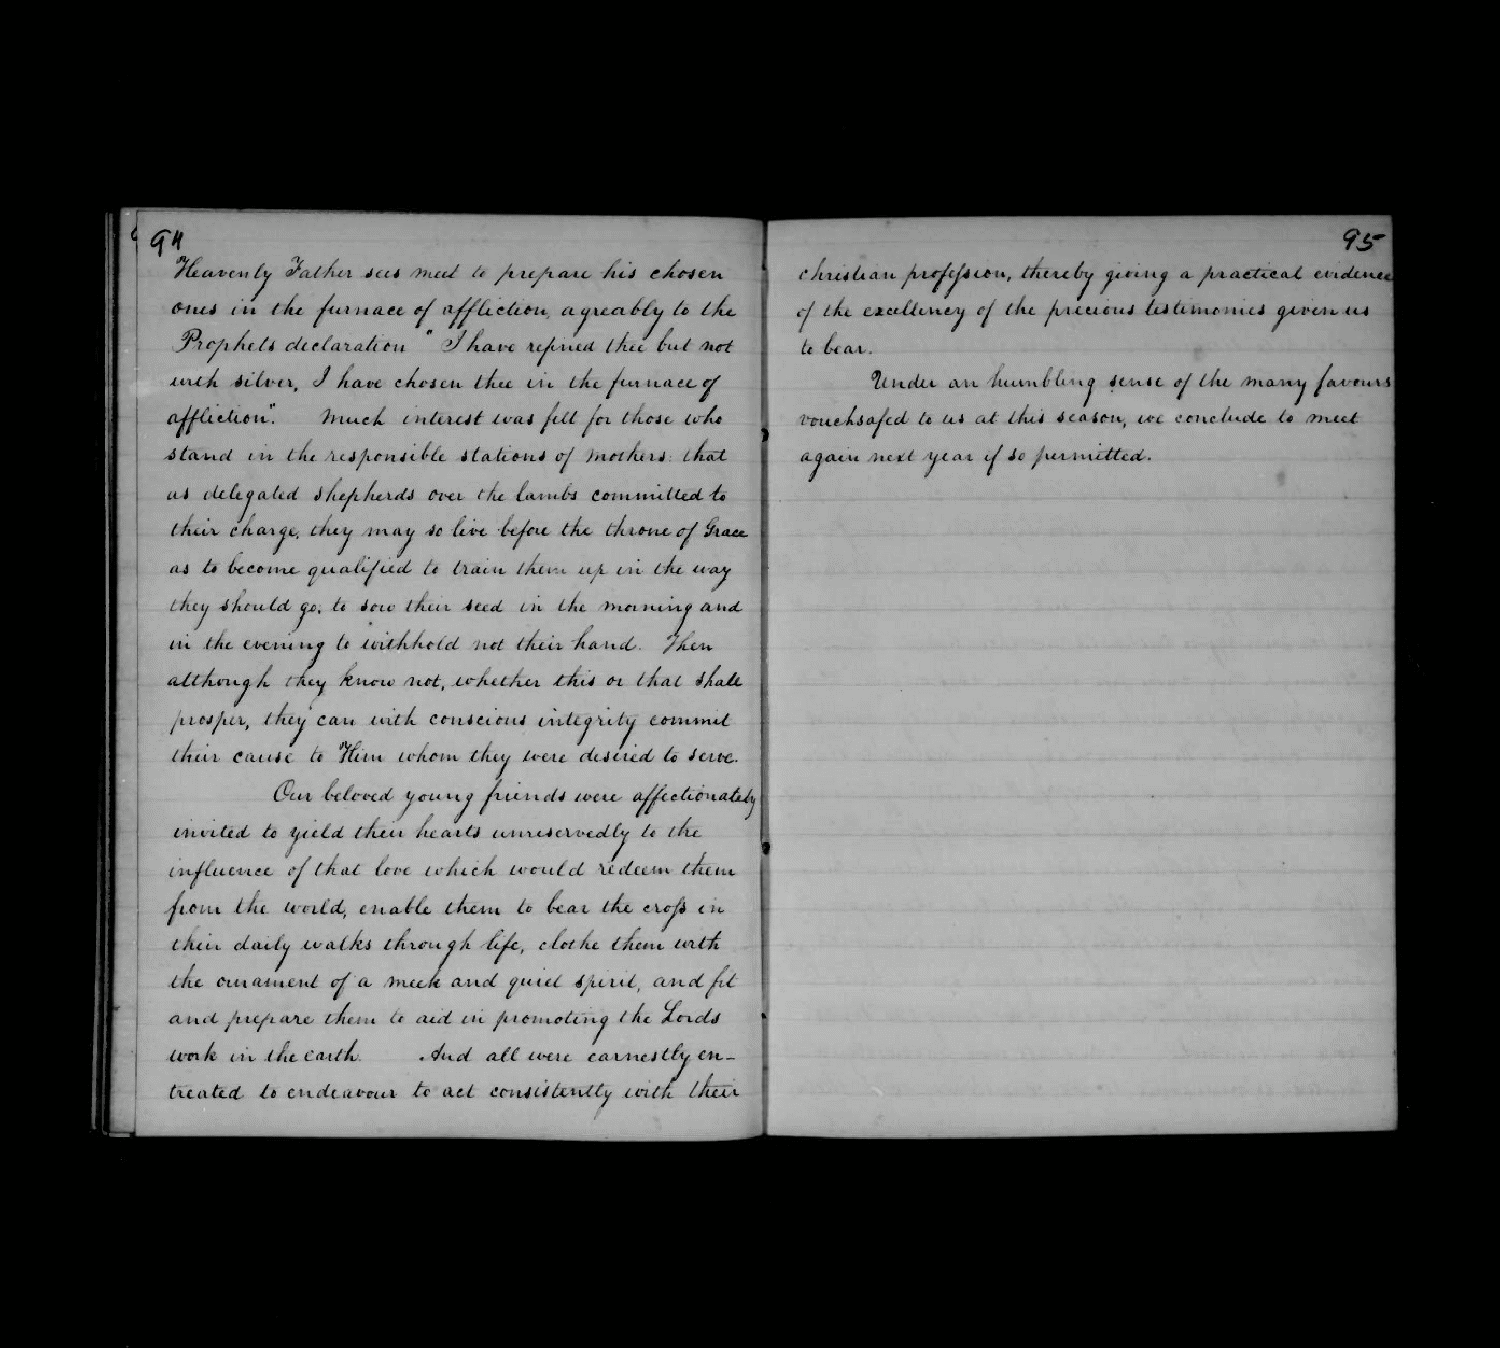 94
Heavenly Father sees meet to prepare his chosen
ones in the furnace of affliction, agreably to the
Prophets declaration "I have refined thee but not
with silver, I have chosen thee in the furnace of
affliction". Much interest was felt for those who
stand in the responsible stations of mothers: that
as delegated shepherds over the lambs committed to
their charge, they may so live before the throne of Grace
as to become qualified to train them up in the way
they should go; to sow their seed in the morning and
in the evening to withhold not their hand. Then
although they know not, whether this or that shall
prosper, they can with conscious integrity commit
their cause to Him whom they were desired to serve.
Our beloved young friends were affectionately
invited to yield their hearts unreservedly to the
influence of that love which would redeem them
from the world, enable them to bear the cross in
their daily walks through life, clothe them with
the ornament of a meek and quiet spirit, and fit
and prepare them to aid in promoting the Lords
work in the earth. And all were earnestly en-
treated to endeavour to act consistently with their
95
christian profession, thereby giving a practical evidence
of the excellency of the precious testimonies given us
to bear.
Under an humbling sense of the many favours
vouchsafed to us at this season, we conclude to meet
again next year if so permitted.